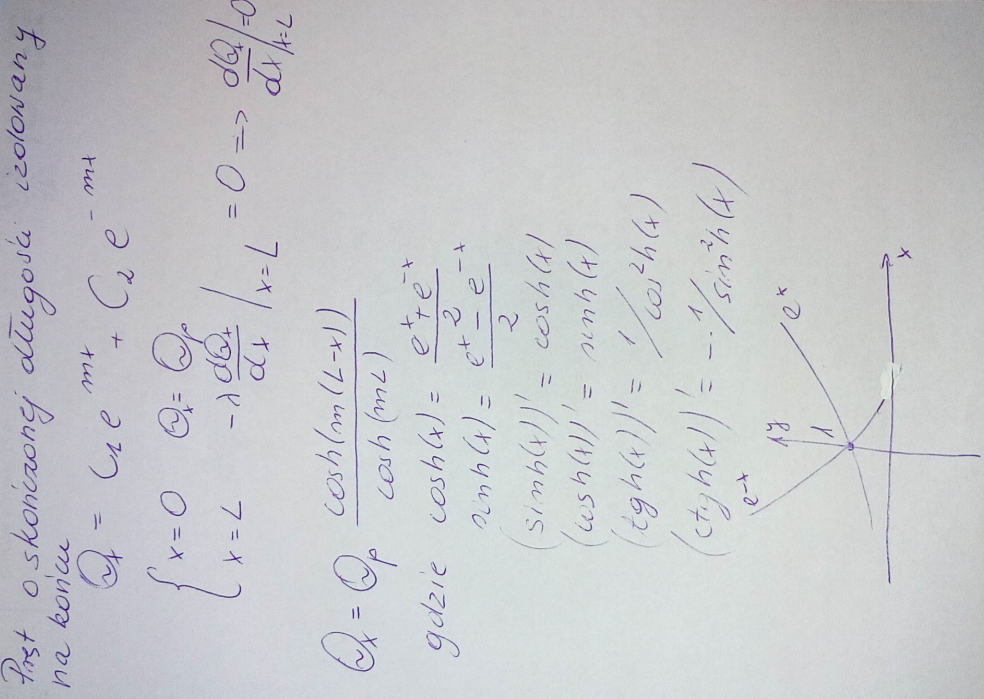 Pręt o skończonej długości izolowany
na końcu
Θₓ = C₁e^mx + C₂e^-mx
{ x=0 Θₓ = Θₚ
x=L -λ dΘₓ/dx |x=L = 0 => dΘₓ/dx |x=L = 0
Θₓ = Θₚ cosh(m(L-x))/cosh(mL)
gdzie cosh(x) = (eˣ+e⁻ˣ)/2
sinh(x) = (eˣ-e⁻ˣ)/2
(sinh(x))' = cosh(x)
(cosh(x))' = sinh(x)
(tgh(x))' = 1/cos²h(x)
(ctgh(x))' = -1/sin²h(x)
e⁻ˣ y eˣ
1
x